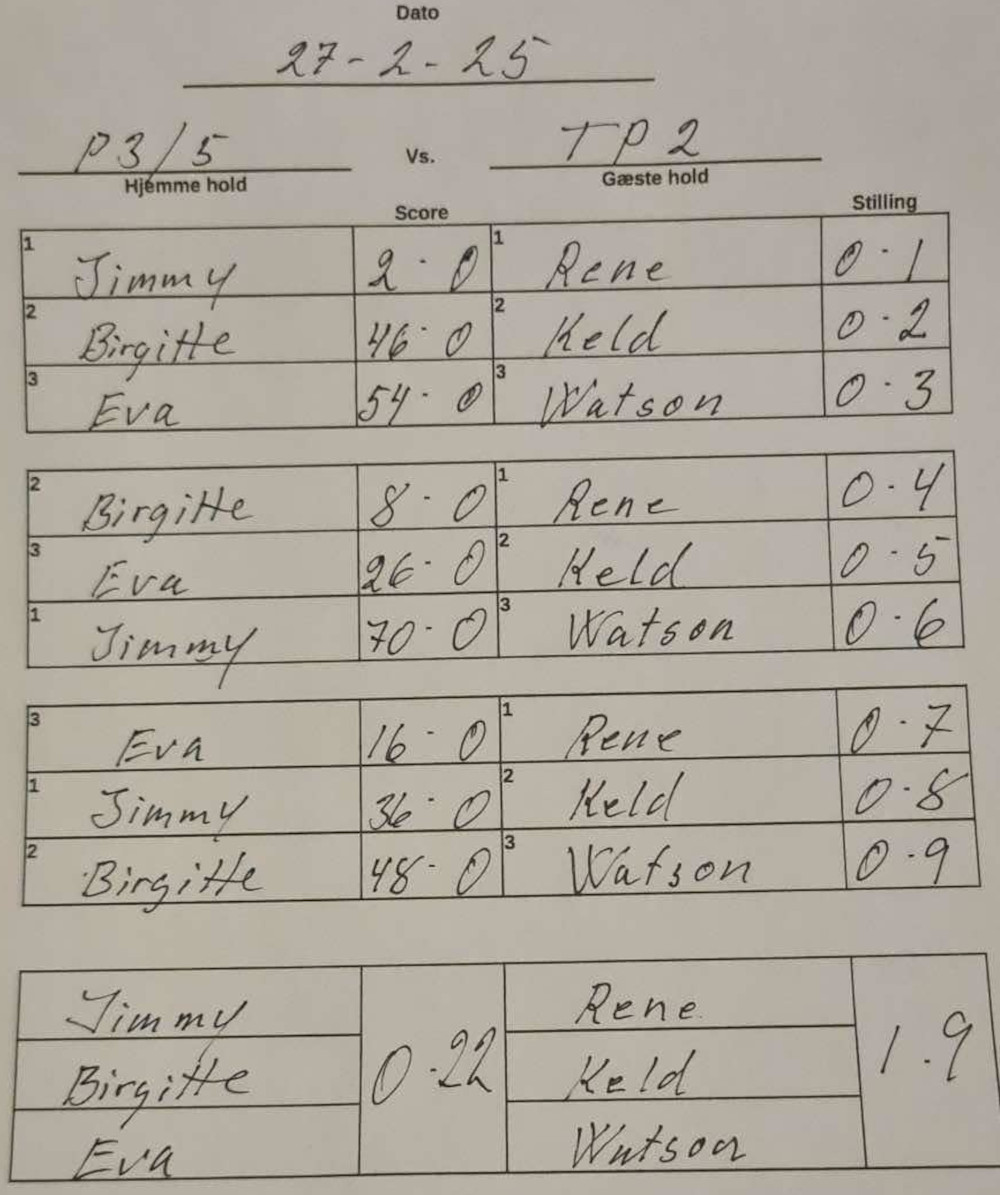 Dato
27-2-25
P3/5 Vs. TP2
Hjemme hold Gæste hold
Score Stilling
1 Jimmy 2-0 1 Rene 0-1
2 Birgitte 46-0 2 Keld 0-2
3 Eva 54-0 3 Watson 0-3
2 Birgitte 8-0 1 Rene 0-4
3 Eva 26-0 2 Keld 0-5
1 Jimmy 70-0 3 Watson 0-6
3 Eva 16-0 1 Rene 0-7
1 Jimmy 36-0 2 Keld 0-8
2 Birgitte 48-0 3 Watson 0-9
Jimmy Rene
Birgitte 0-22 Keld 1-9
Eva Watson